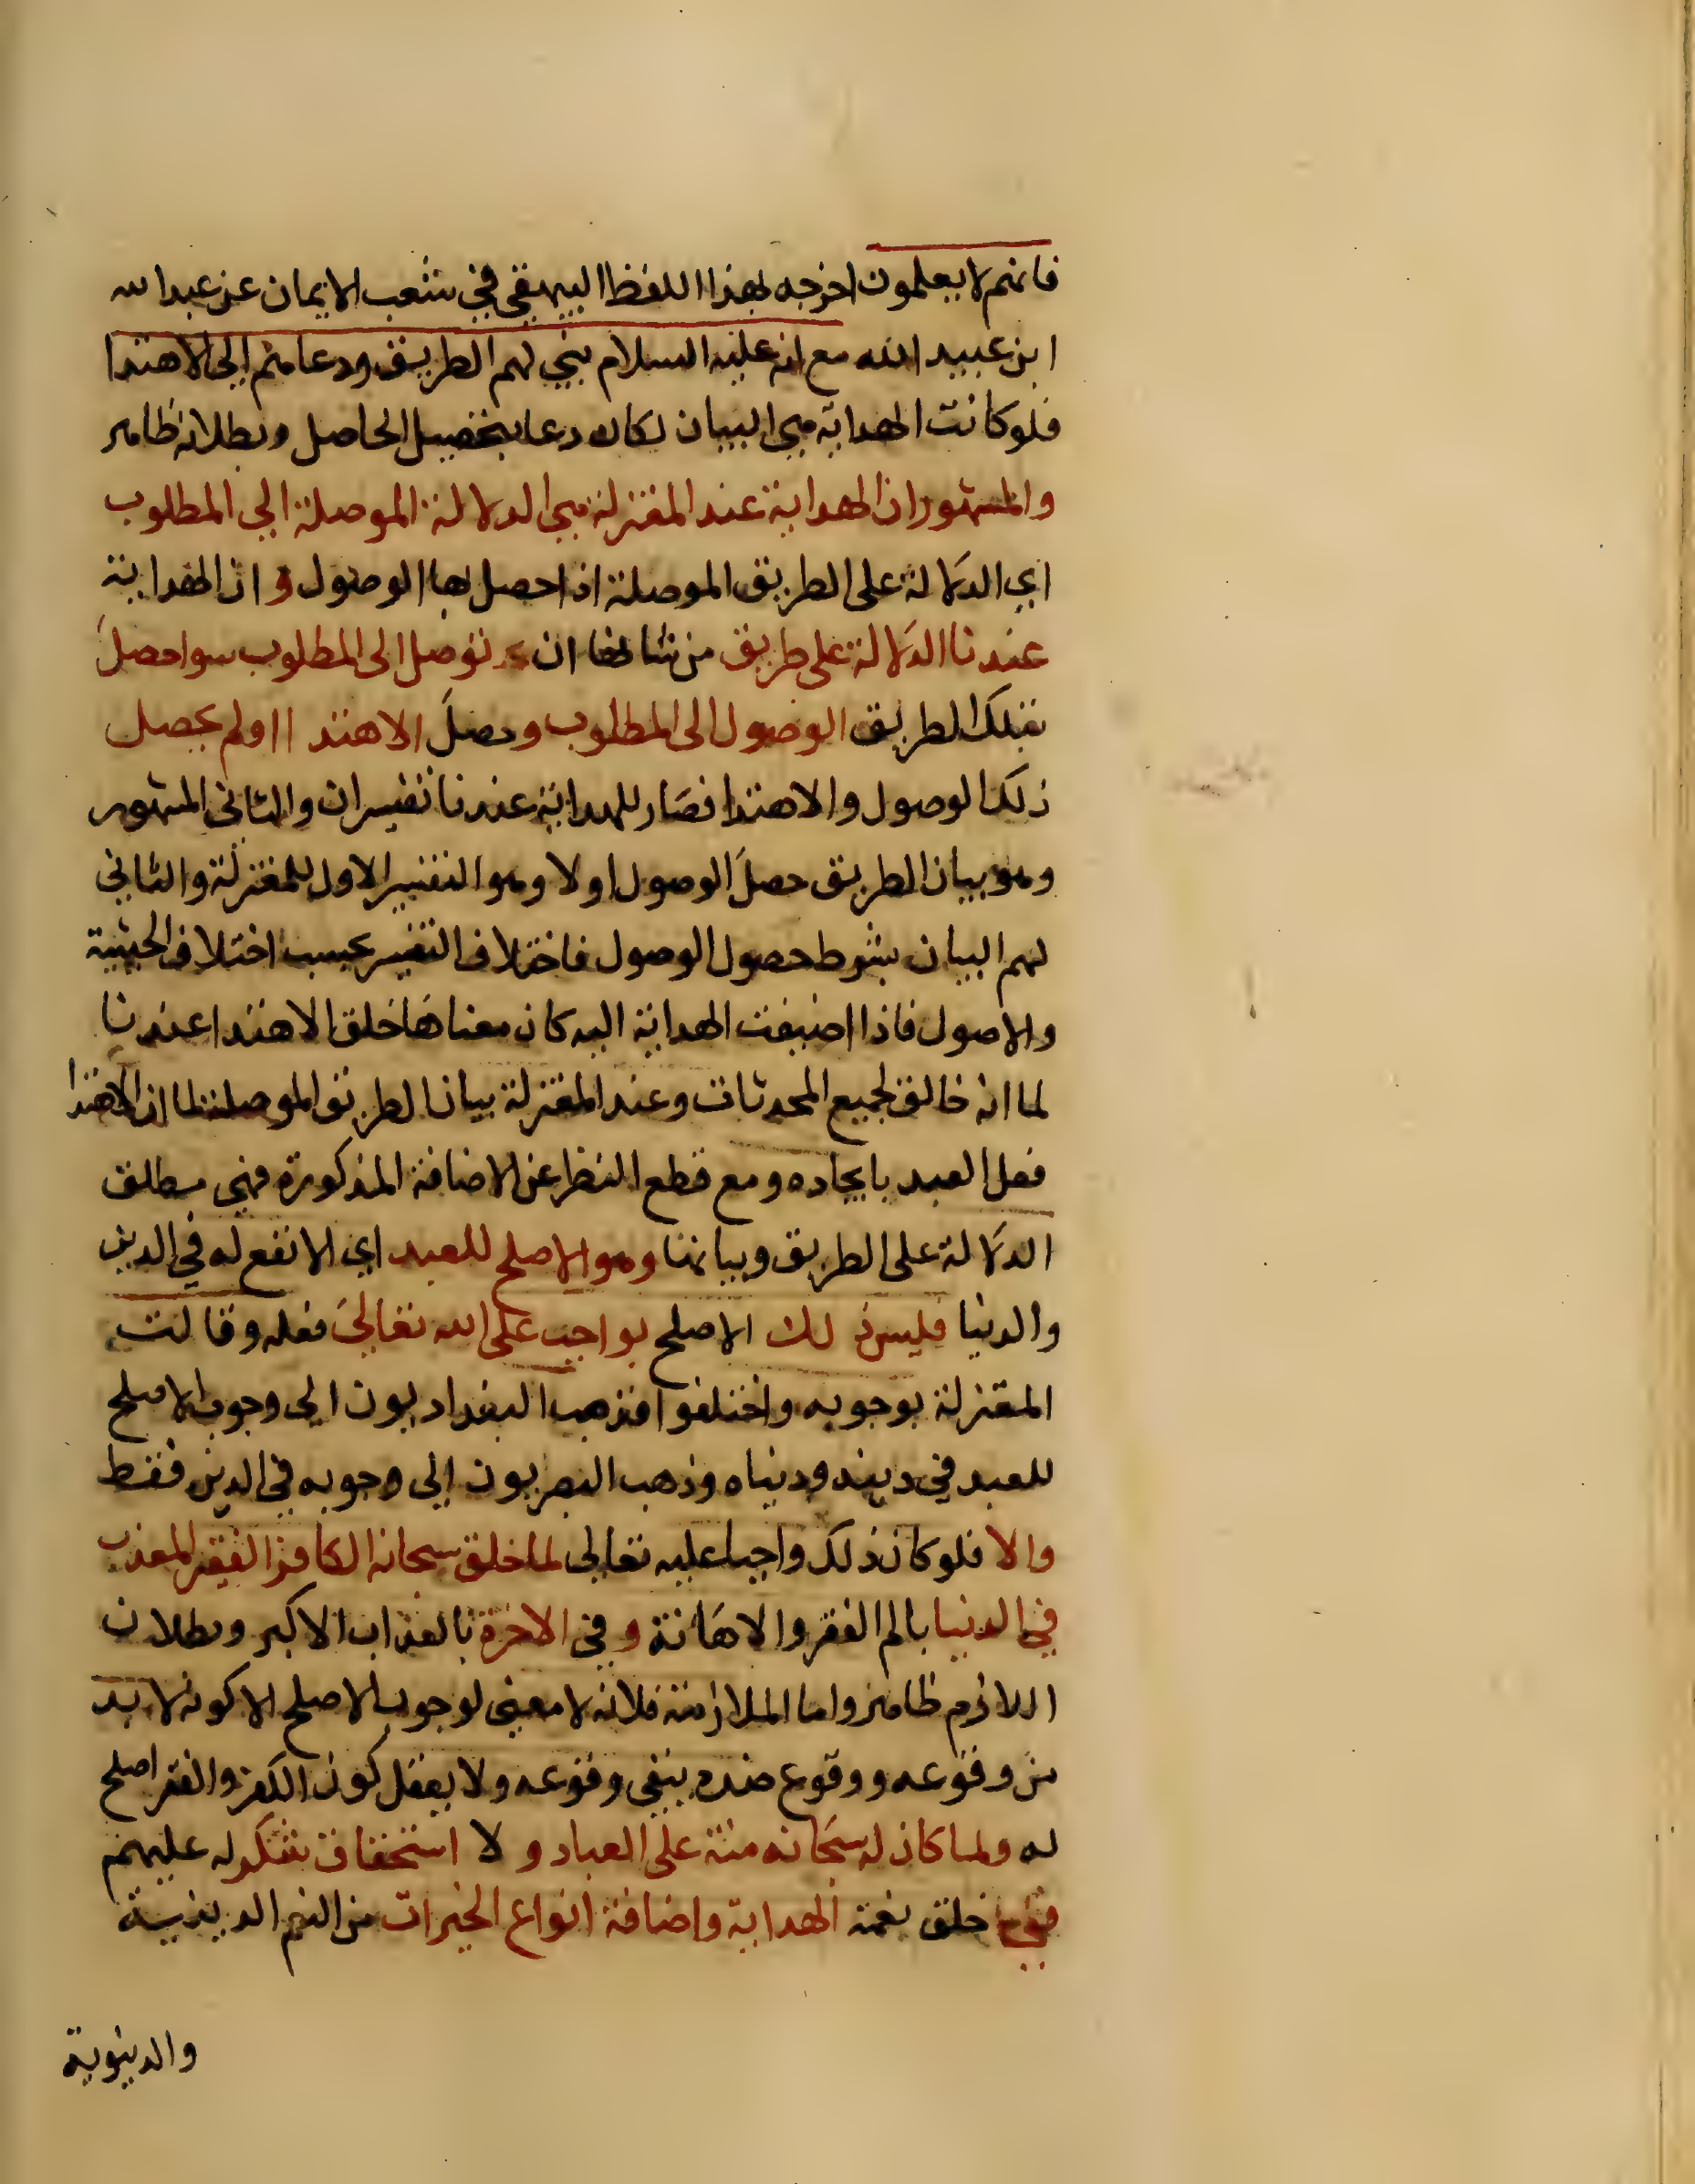 فانهم لا يعلمون اخرجه بهذا اللفظ البيهقي في شعب الايمان عن عبد الله
ابن عبيد الله مع انه عليه السلام بين لهم الطريق ودعاهم الى الاهتدا
فلو كانت الهداية هي البيان لكان دعا بتحصيل الحاصل وبطلانه ظاهر
والمشهور ان الهداية عند المعتزلة هي الدلالة الموصلة الى المطلوب
اي الدلالة على الطريق الموصلة اذا حصل بها الوصول و ان الهداية
عندنا الدلالة على طريق من شانها ان توصل الى المطلوب سوا حصل
بتلك الطريق الوصول الى المطلوب وحصل الاهتدا او لم يحصل
ذلك الوصول والاهتدا فصار للهداية عندنا تفسيران والثاني المشهور
وهو بيان الطريق حصل الوصول اولا وهو التفسير الاول للمعتزلة والثاني
لهم البيان بشرط حصول الوصول فاختلاف التفسير بحسب اختلاف الحيثية
والاصول فاذا اضيفت الهداية اليه كان معناها خلق الاهتدا عندنا
لما انه خالق لجميع المحدثات وعند المعتزلة بيان الطريق الموصلة لما ان الاهتدا
فعل العبد بايجاده ومع قطع النظر عن الاضافة المذكورة فهي مطلق
الدلالة على الطريق وبيانها وهو الاصلح للعبد اي الانفع له في الدين
والدنيا فليس ذلك الاصلح بواجب على الله تعالى فعله وقالت
المعتزلة بوجوبه واختلفوا فذهب البغداديون الى وجوب الاصلح
للعبد في دينه ودنياه وذهب البصريون الى وجوبه في الدين فقط
والا فلو كان ذلك واجبا عليه تعالى لما خلق سبحانه الكافر الفقير المعذب
في الدنيا بالم الفقر والاهانة و في الاخرة بالعذاب الاكبر وبطلان
اللازم ظاهر واما الملازمة فلانه لا معنى لوجوب الاصلح الا كونه لا بد
من وقوعه ووقوع ضده ينفي وقوعه ولا يعقل كون الكفر والفقر اصلح
له ولما كان له سبحانه منة على العباد و لا استحقاق شكر له عليهم
في خلق نعمة الهداية واضافة انواع الخيرات من النعم الدينية
والدنيوية